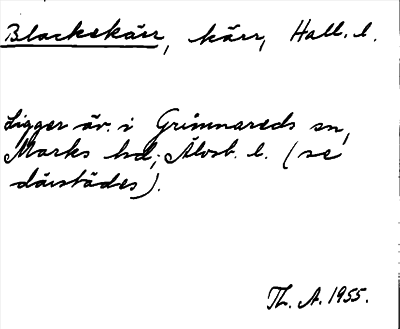 Blackekärr, kärr, Hall. l.
Ligger äv. i Grimnareds sn,
Marks hd, Älvsb. l. (se
därstädes).
Th. A. 1955.